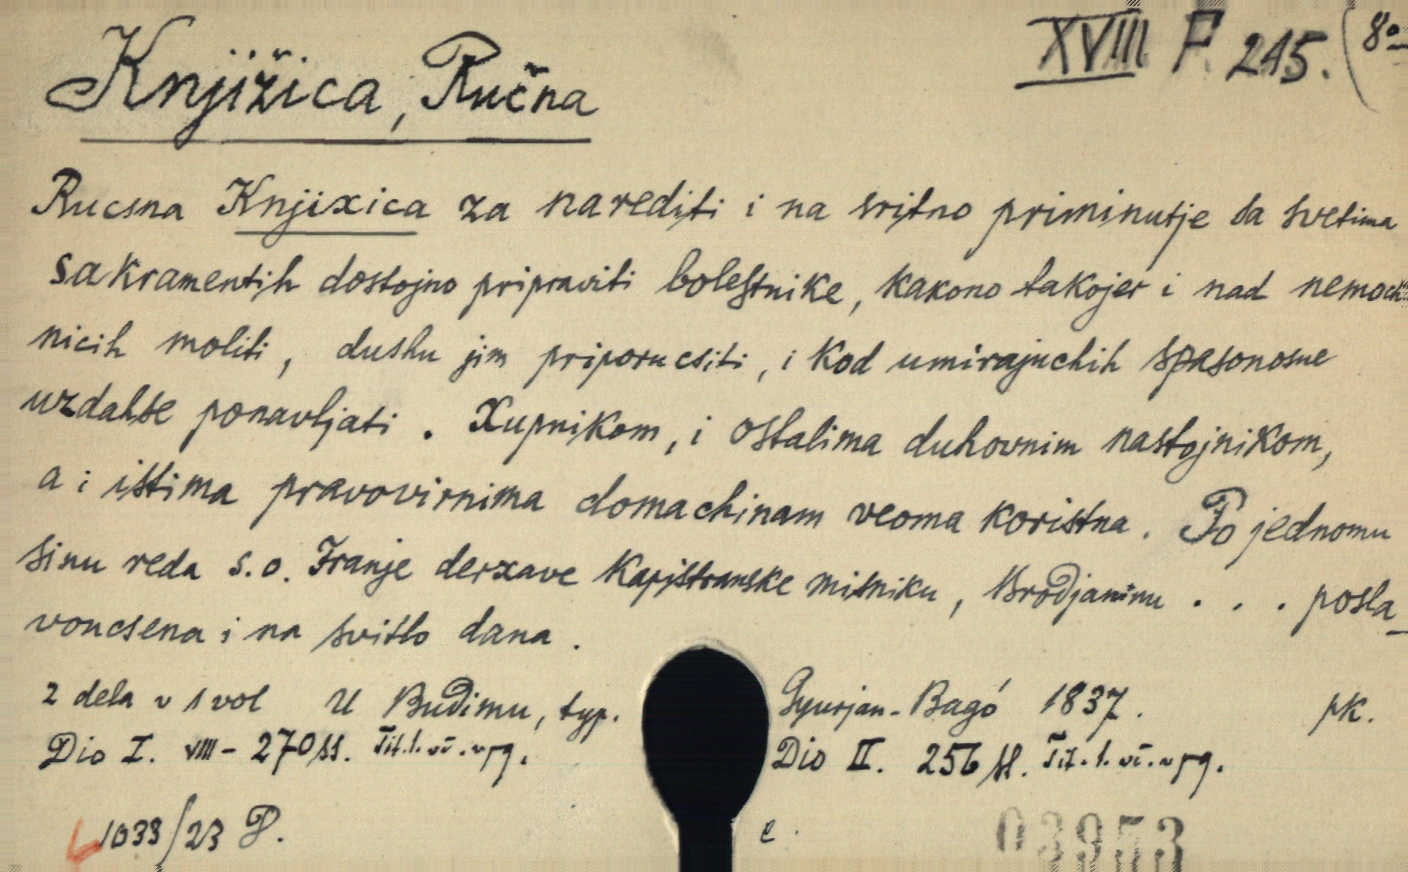 XVIII F. 215. (8º
Knjižica, Ručna
Rucsna Knjixica za narediti i na sritno priminutje sa svetima
sakramentih dostojno pripraviti bolestnike, kakono takojer i nad nemoch
nicih moliti, dushu jim priporucsiti, i kod umirajuchih spasonosne
uzdahse ponavljati. Xupnikom, i ostalima duhovnim nastojnikom,
a i istima pravovirnima domachinam veoma koristna. Po jednomu
sinu reda s. o. Franje derxave Kapistranske misniku, Brodjaninu . . . posla_
voncsena i na svitlo dana.
2 dela v 1 vol U Budimu, typ. Gyurjan-Bagó 1837. pk.
Dio I. VIII - 270 ss. Tit. l. vi. v pg. Dio II. 256 ss. Tit. l. vi. v pg.
1033/23 P. e.
03953